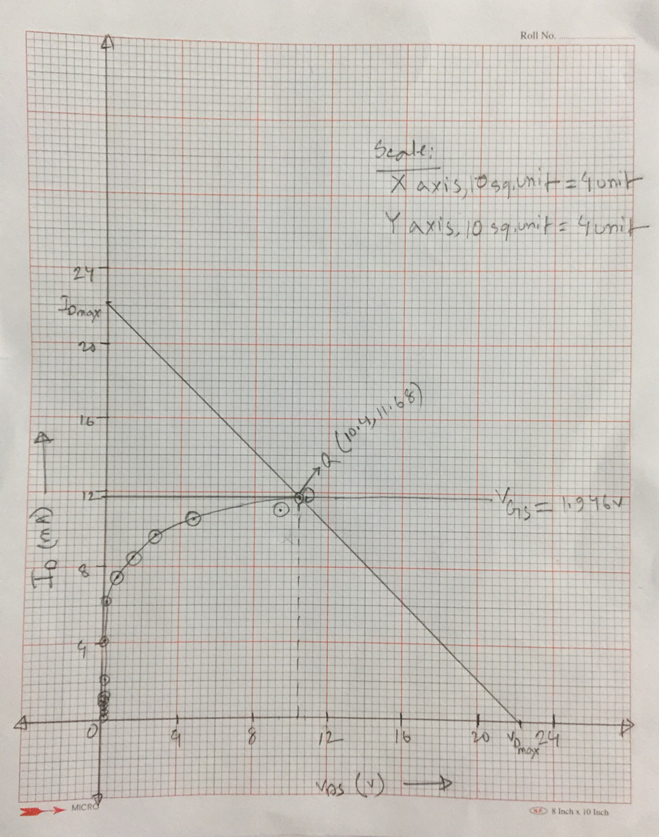 Roll No.
Scale:
X axis, 10 sq.unit = 4 unit
Y axis, 10 sq.unit = 4 unit
24
IDmax
20
16
Q (10.4, 11.68)
12
VGS = 1.946V
ID (mA)
8
4
0 4 8 12 16 20 VDmax 24
VDS (V)
MICRO
8 Inch x 10 Inch